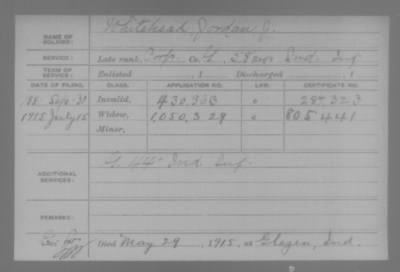 NAME OF SOLDIER: Whitehead, Jordan J.
SERVICE: Late rank, Corp. Co. G, 58 Reg't Ind. Inf
TERM OF SERVICE: Enlisted , 1 Discharged , 1
DATE OF FILING. CLASS. APPLICATION NO. LAW. CERTIFICATE NO.
Invalid, 430,363 287,323
1915 July 15 Widow, 1,050,329 805441
Minor,
ADDITIONAL SERVICES: G 44 Ind Inf.
REMARKS:
Died May 29, 1915, at Glezen, Ind.